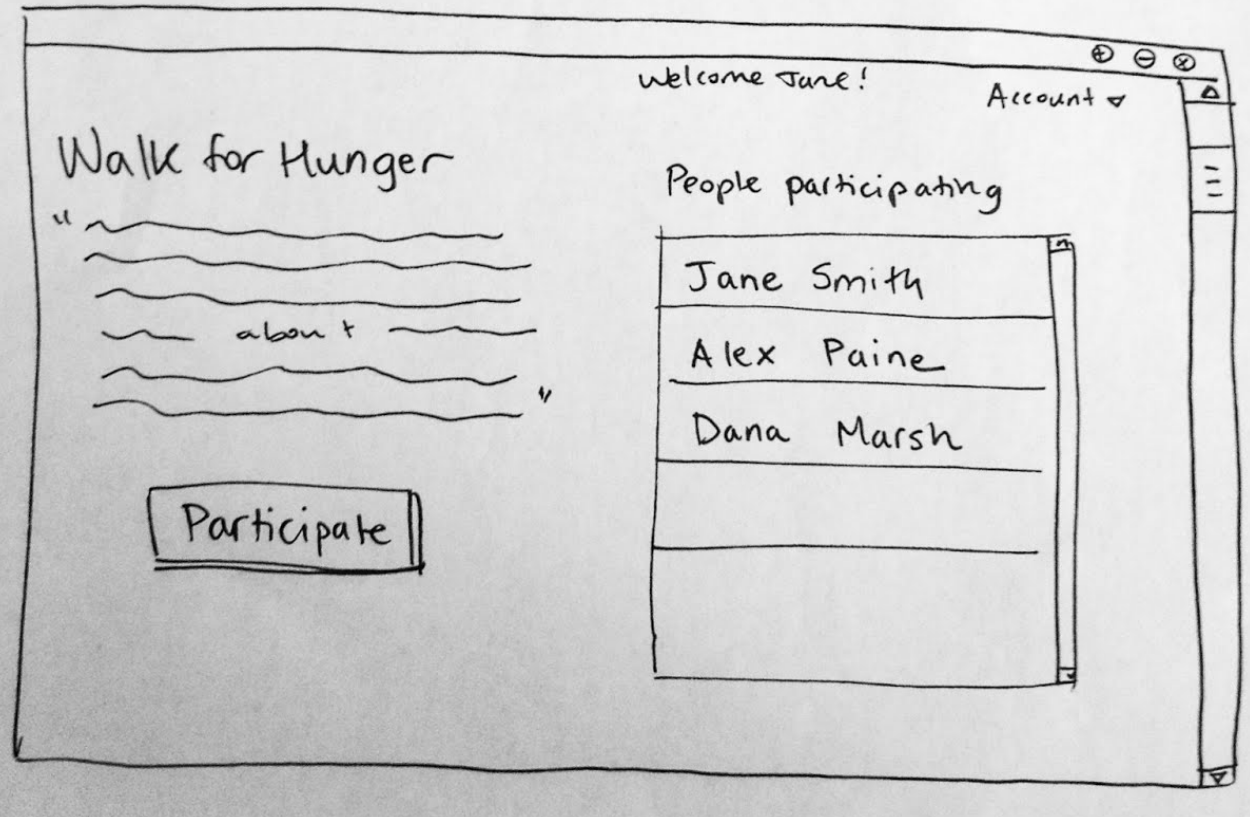 Welcome Jane!
Account
Walk for Hunger
"
about
"
Participate
People participating
Jane Smith
Alex Paine
Dana Marsh